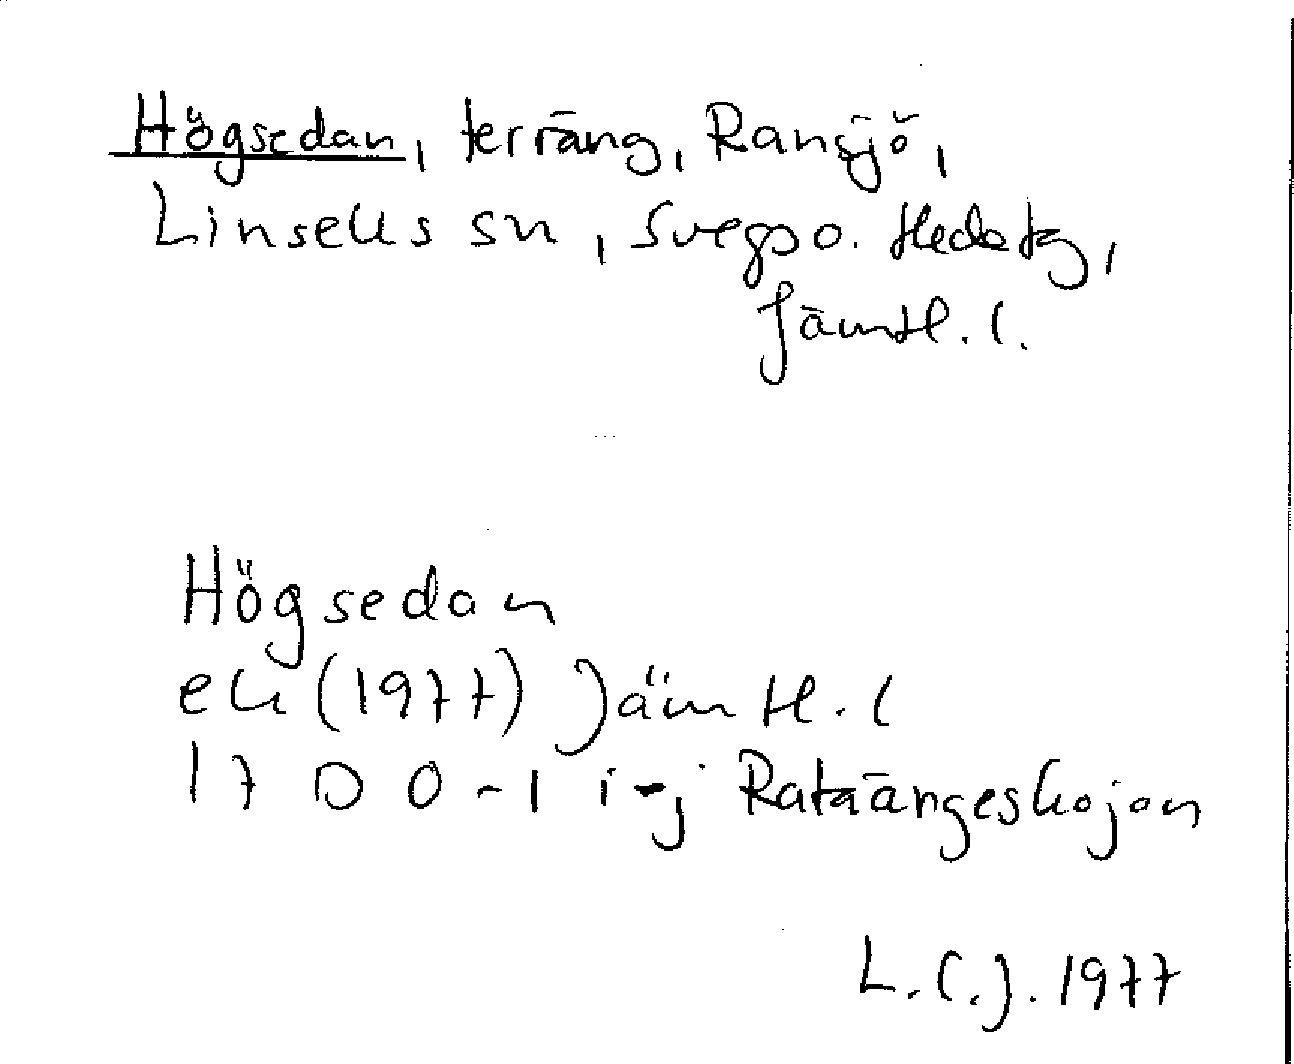 Högsedan, terräng, Ransjö,
Linsells sn, Svegs o. Hede tg,
Jämtl. l.
Högsedan
ek (1977) Jämtl. l
17 D 0-1 i-j Rataängeskojan
L.C.J. 1977